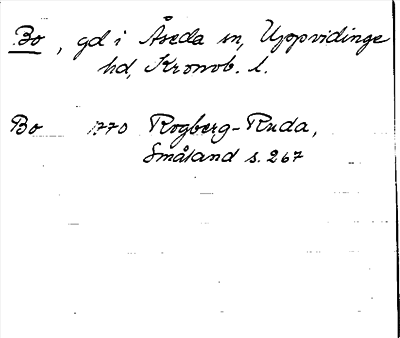 Bo, gd i Åseda sn, Uppvidinge
hd, Kronob. l.
Bo 1770 Rogberg-Ruda,
Småland s. 267